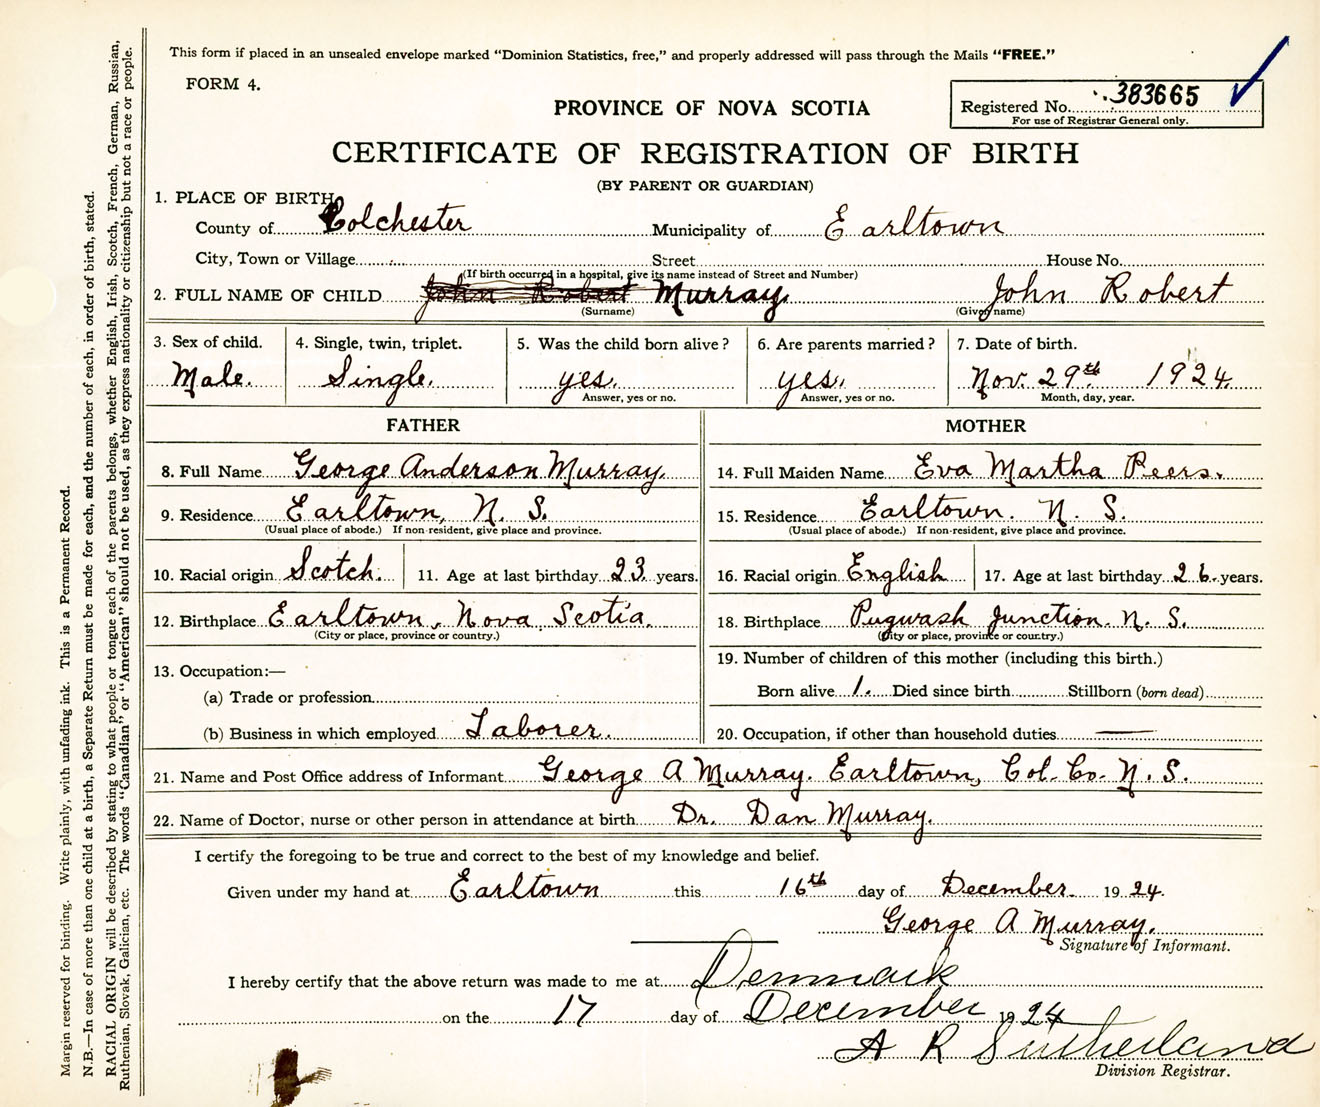 This form if placed in an unsealed envelope marked “Dominion Statistics, free,” and properly addressed will pass through the Mails “FREE.”
FORM 4.
Registered No. 383665
For use of Registrar General only.
PROVINCE OF NOVA SCOTIA
CERTIFICATE OF REGISTRATION OF BIRTH
(BY PARENT OR GUARDIAN)
1. PLACE OF BIRTH
County of Colchester Municipality of Earltown
City, Town or Village Street House No.
(If birth occurred in a hospital, give its name instead of Street and Number)
2. FULL NAME OF CHILD John Robert Murray. John Robert
(Surname) (Given name)
3. Sex of child. 4. Single, twin, triplet. 5. Was the child born alive? 6. Are parents married? 7. Date of birth.
Male. Single. yes. yes. Nov. 29th 1924.
Answer, yes or no. Answer, yes or no. Month, day, year.
FATHER MOTHER
8. Full Name George Anderson Murray. 14. Full Maiden Name Eva Martha Peers.
9. Residence Earltown, N. S. 15. Residence Earltown. N. S.
(Usual place of abode.) If non-resident, give place and province. (Usual place of abode.) If non-resident, give place and province.
10. Racial origin Scotch. 11. Age at last birthday 23 years. 16. Racial origin English 17. Age at last birthday 26. years.
12. Birthplace Earltown, Nova Scotia. 18. Birthplace Pugwash Junction. N. S.
(City or place, province or country.) (City or place, province or country.)
13. Occupation:— 19. Number of children of this mother (including this birth.)
(a) Trade or profession Born alive 1. Died since birth Stillborn (born dead)
(b) Business in which employed Laborer. 20. Occupation, if other than household duties —
21. Name and Post Office address of Informant George A Murray. Earltown, Col. Co. N. S.
22. Name of Doctor, nurse or other person in attendance at birth Dr. Dan Murray.
I certify the foregoing to be true and correct to the best of my knowledge and belief.
Given under my hand at Earltown this 16th day of December 1924.
George A Murray.
Signature of Informant.
I hereby certify that the above return was made to me at Denmark
on the 17 day of December 1924
A R Sutherland
Division Registrar.
Margin reserved for binding. Write plainly, with unfading ink. This is a Permanent Record.
N.B.—In case of more than one child at a birth, a Separate Return must be made for each, and the number of each, in order of birth, stated.
RACIAL ORIGIN will be described by stating to what people or tongue each of the parents belongs, whether English, Irish, Scotch, French, German, Russian,
Ruthenian, Slovak, Galician, etc. The words “Canadian” or “American” should not be used, as they express nationality or citizenship but not a race or people.